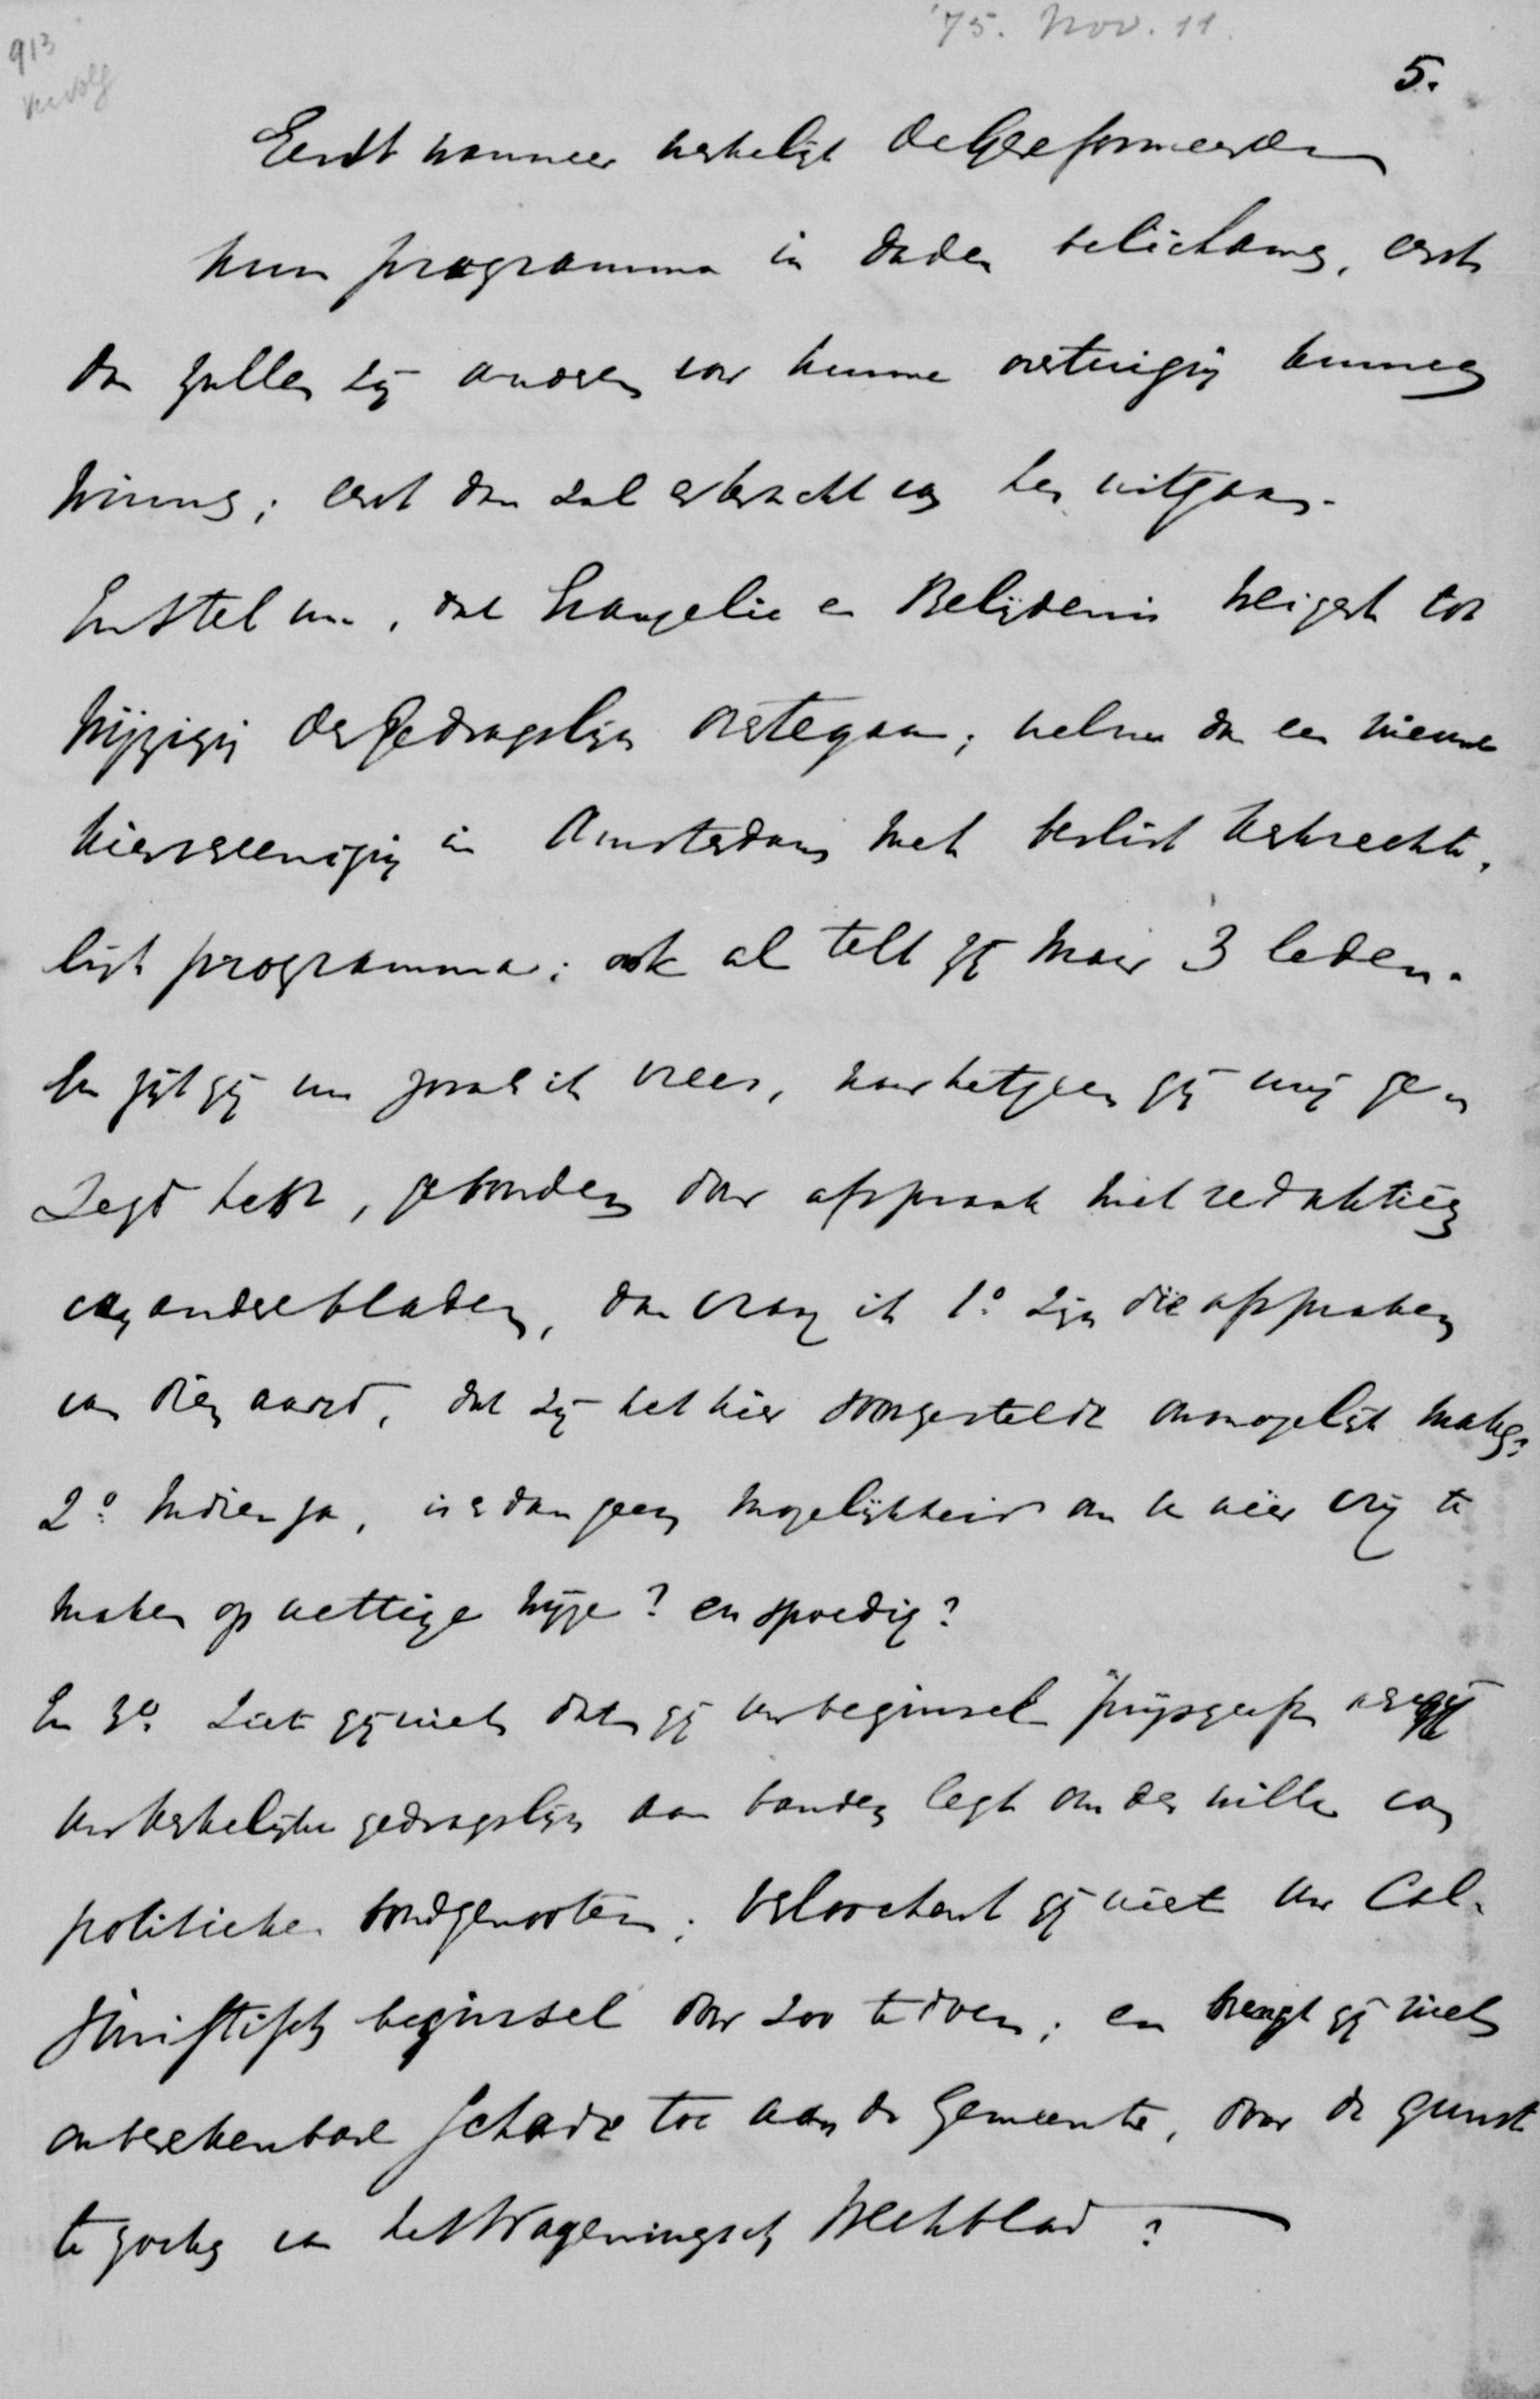 '75. Nov. 11.
913
vervolg
5.
Eerst wanneer kerkelijk de Gereformeerden
hun programma in daden belichamen, eerst
dan zullen zij anderen voor hunne overtuiging kunnen
winnen; eerst dan zal er kracht van hen uitgaan.
En stel nu, dat Evangelie en Belijdenis weigert tot
wijziging der gedragslijn over te gaan; welnu dan een nieuwe
kiesvereeniging in Amsterdam met beslist kerkrechte-
lijk programma; ook al telt zij maar 3 leden.
En zijt gij nu zooals ik vrees, naar hetgeen gij mij ge-
zegd hebt, gebonden door afspraak met redaktiën
van andere bladen, dan vraag ik 1º. zijn die afspraken
van dien aard, dat zij het hier voorgestelde onmogelijk maken?
2º. Indien ja, is er dan geen mogelijkheid om u weer vrij te
maken op wettige wijze? en spoedig?
En 3º. Ziet gij niet dat gij uw beginsel prijsgeeft als gij
uw kerkelijke gedragslijn aan banden legt om der wille van
politieke bondgenooten; verloochent gij niet uw Cal-
vinistisch beginsel door zoo te doen; en brengt gij niet
onberekenbare schade toe aan de Gemeente, door de gunst
te zoeken van het Wageningsch Weekblad?